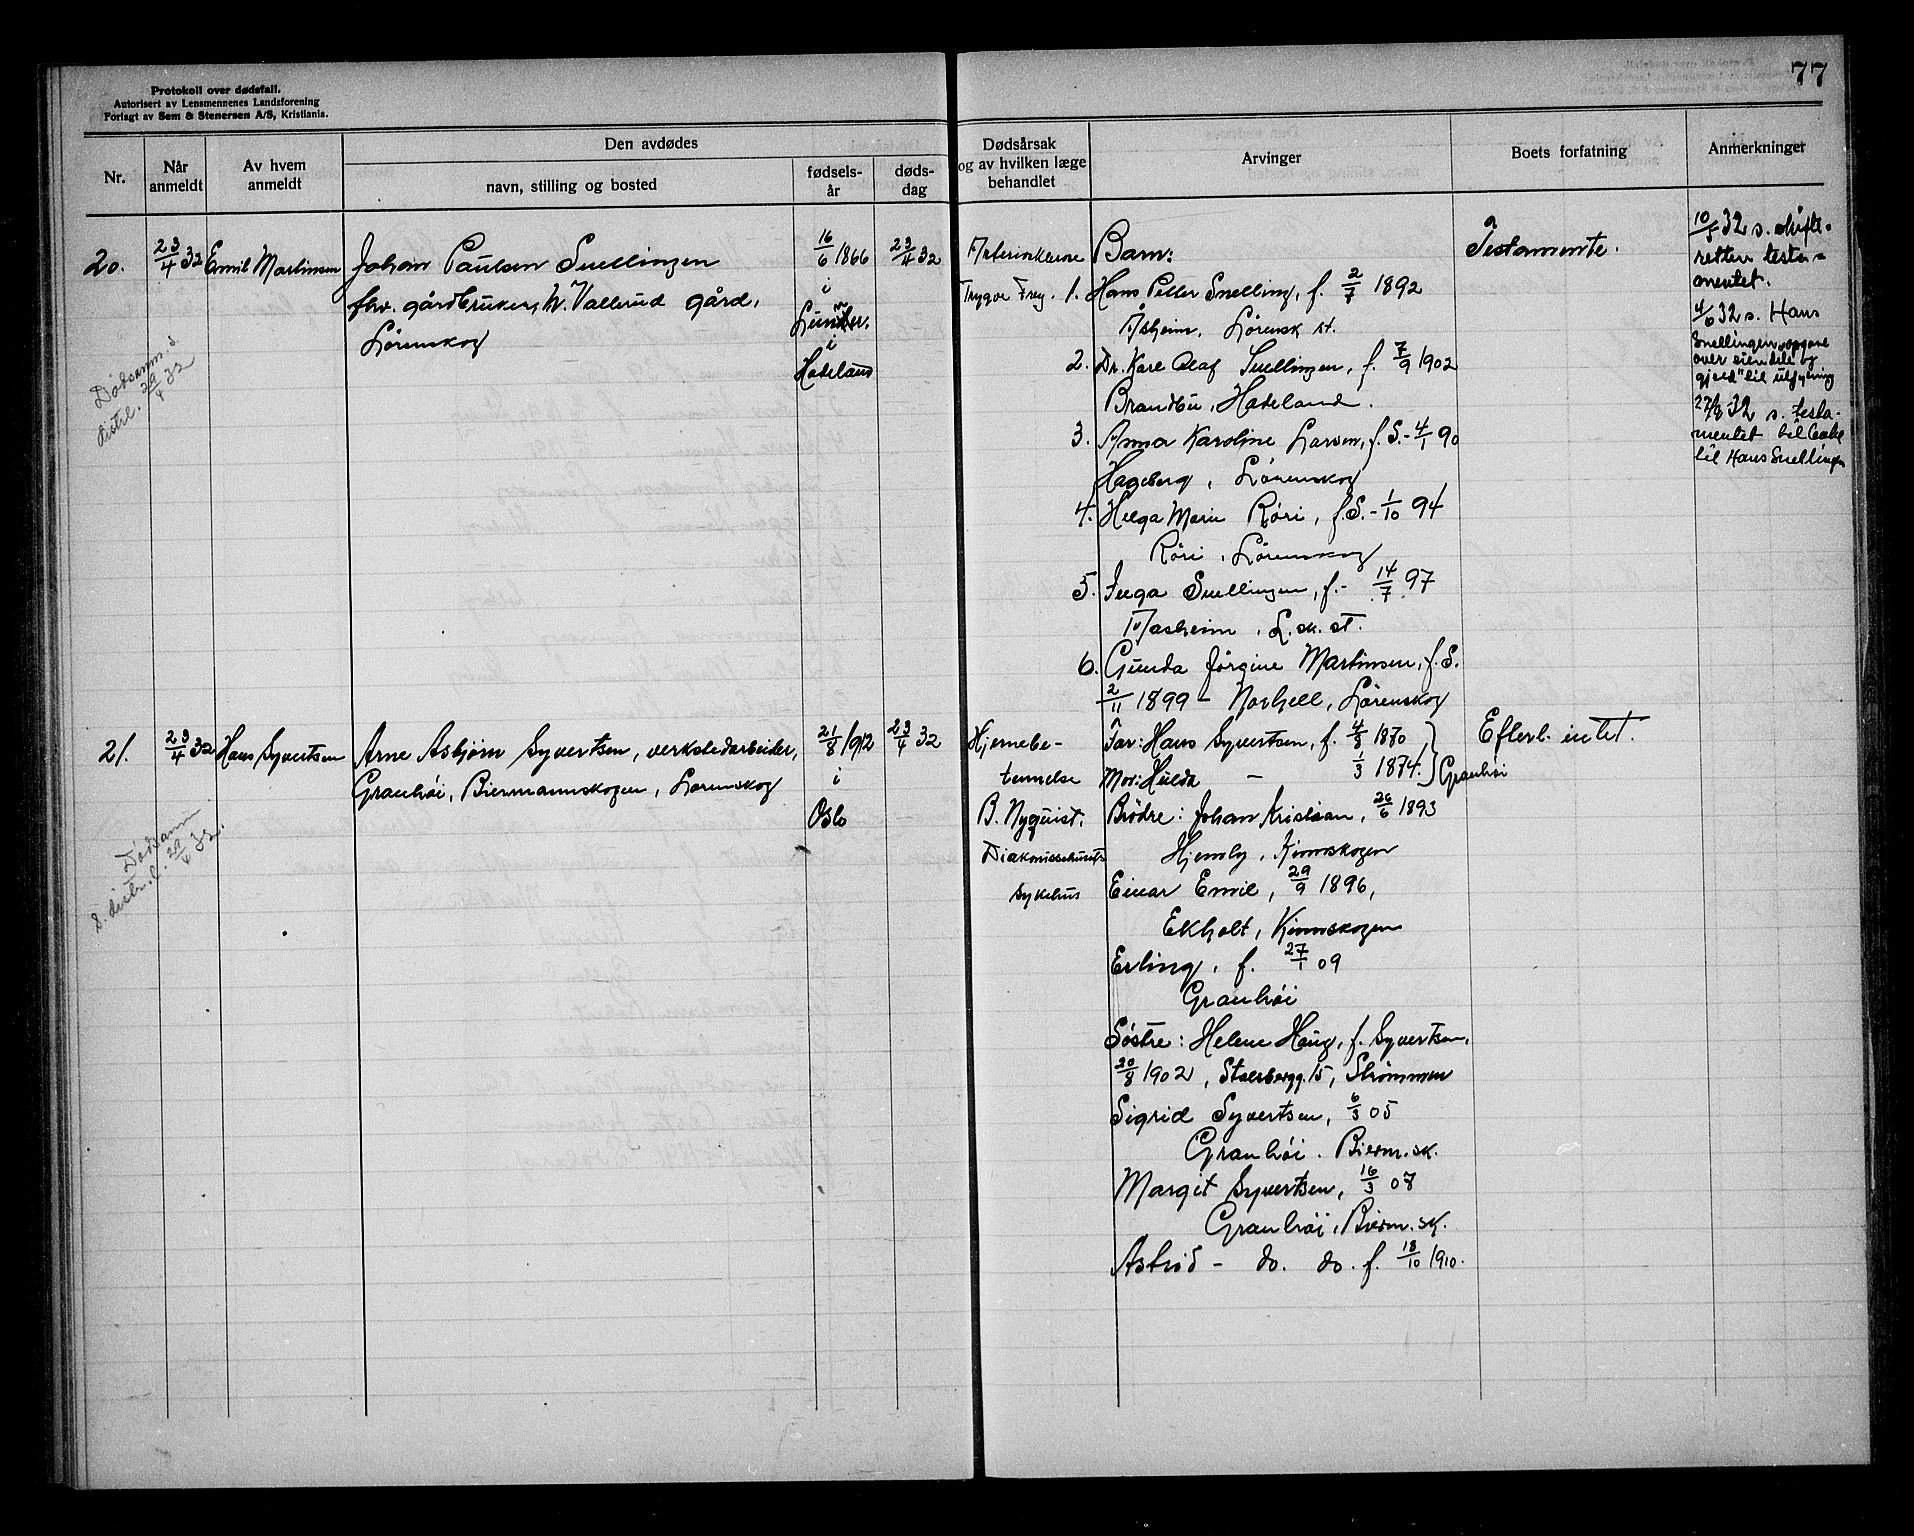 77
Protokoll over dødsfall.
Autorisert av Lensmennenes Landsforening
Forlagt av Sem & Stenersen A/S, Kristiania.
Nr.
Når anmeldt
Av hvem anmeldt
Den avdødes
navn, stilling og bosted
fødsels-år
døds-dag
Dødsårsak og av hvilken læge behandlet
Arvinger
Boets forfatning
Anmerkninger
20.
23/4 32
Emil Martinsen
Johan Paulsen Snellingen
fhv. gårdbruker, N. Vallerud gård,
Lørenskog
16/6 1866
i
Lunner
i
Hadeland
23/4 32
Trygve Frey.
Barn:
1. Hans Petter Snelling, f. 2/7 1892
Åsheim, Lørensk st.
2. Dr. Kare Olaf Snellingen, f. 7/9 1902
Brandbu, Hadeland.
3. Anna Karoline Larsen, f. S. - 4/1 90
Hageberg, Lørenskog
4. Helga Marie Røri, f. S. - 1/10 94
Røri, Lørenskog
5. Inga Snellingen, f. - 14/7 97
Aasheim, L.sk. st.
6. Gunda Jørgine Martinsen, f. S.
2/11 1899 - Norhell, Lørenskog
Testamente.
10/5 32 s. skifte-
retten testa-
mentet.
4/6 32 s. Hans
Snellingen "opgave
over eiendele og
gjeld" til utfylning
27/8 32 s. testa-
mentet tilbake
til Hans Snellingen
Dødsanm. s.
distr. 29/4 32
21.
23/4 32
Hans Syvertsen
Arne Asbjørn Syvertsen, verkstedarbeider,
Granhøi, Biermannskogen, Lørenskog
21/8 1912
i
Oslo
23/4 32
Hjernebe-
tennelse
B. Nyquist,
Diakonissehusets
sykehus
Far: Hans Syvertsen, f. 4/8 1870
Mor: Hulda - 1/3 1874. } Granhøi
Brødre: Johan Kristian, 26/6 1893
Hjemly, Kinnskogen
Einar Emil, 29/9 1896,
Ekholt, Kinnskogen
Erling, f. 27/1 09
Granhøi
Søstre: Helene Haug, f. Syvertsen,
20/8 1902, Stalsbergg. 15, Strømmen
Sigrid Syvertsen, 6/3 05
Granhøi. Bierm.sk.
Margit Syvertsen, 16/3 07
Granhøi, Bierm.sk.
Astrid - do. do. f. 18/10 1910.
Efterl. intet.
Dødsanm
s. distr. l. 29/4 32.